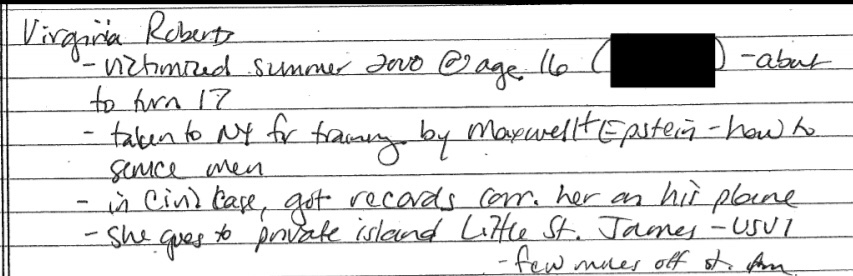 Virginia Roberts
- victimized summer 2000 @ age 16 ( ) - about
to turn 17
- taken to NY for training by Maxwell + Epstein - how to
service men
- in Civil Case, got records corr. her on his plane
- she goes to private island Little St. James - USVI
- few miles off St.